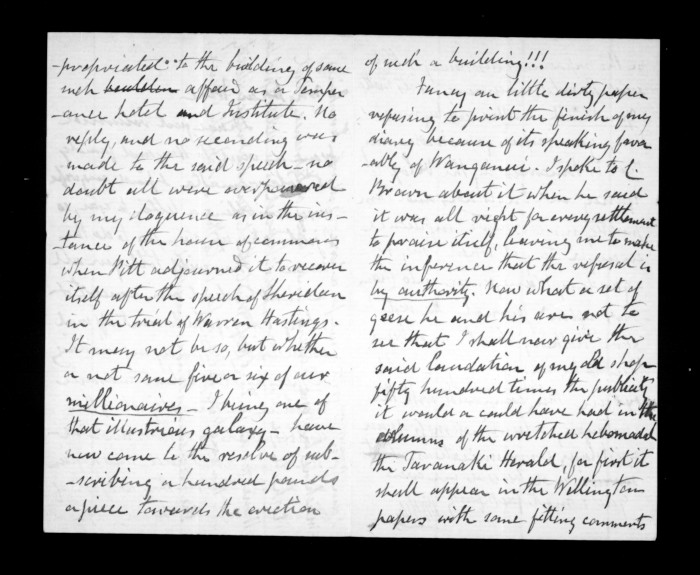 -propriated to the building of some
such bouldin affair as a Temper
-ance hotel and Institute. No
reply, and no seconding was
made to the said speech - no
doubt all were overpowered
by my eloquence as in the ins-
-tance of the house of commons
when Pitt adjourned it to recover
itself after the speech of Sheridan
in the trial of Warren Hastings.
It may not be so, but whether
or not some five or six of our
millionaires - I being one of
that illustrious galaxy - have
now come to the resolve of sub-
-scribing a hundred pounds
apiece towards the erection
of such a building!!!
Fancy our little dirty paper
refusing to print the finish of my
diary because of its speaking favor
-ably of Wanganui. I spoke to C.
Brown about it when he said
it was all right for every settlement
to praise itself, leaving me to make
the inference that the refusal is
by authority. Now what a set of
geese he and his are not to
see that I shall now give the
said laudation of my old shop
fifty hundred times the publicity
it would or could have had in the
columns of the wretched hebdomadal
the Taranaki Herald, for first it
shall appear in the Wellington
papers with some fitting comments